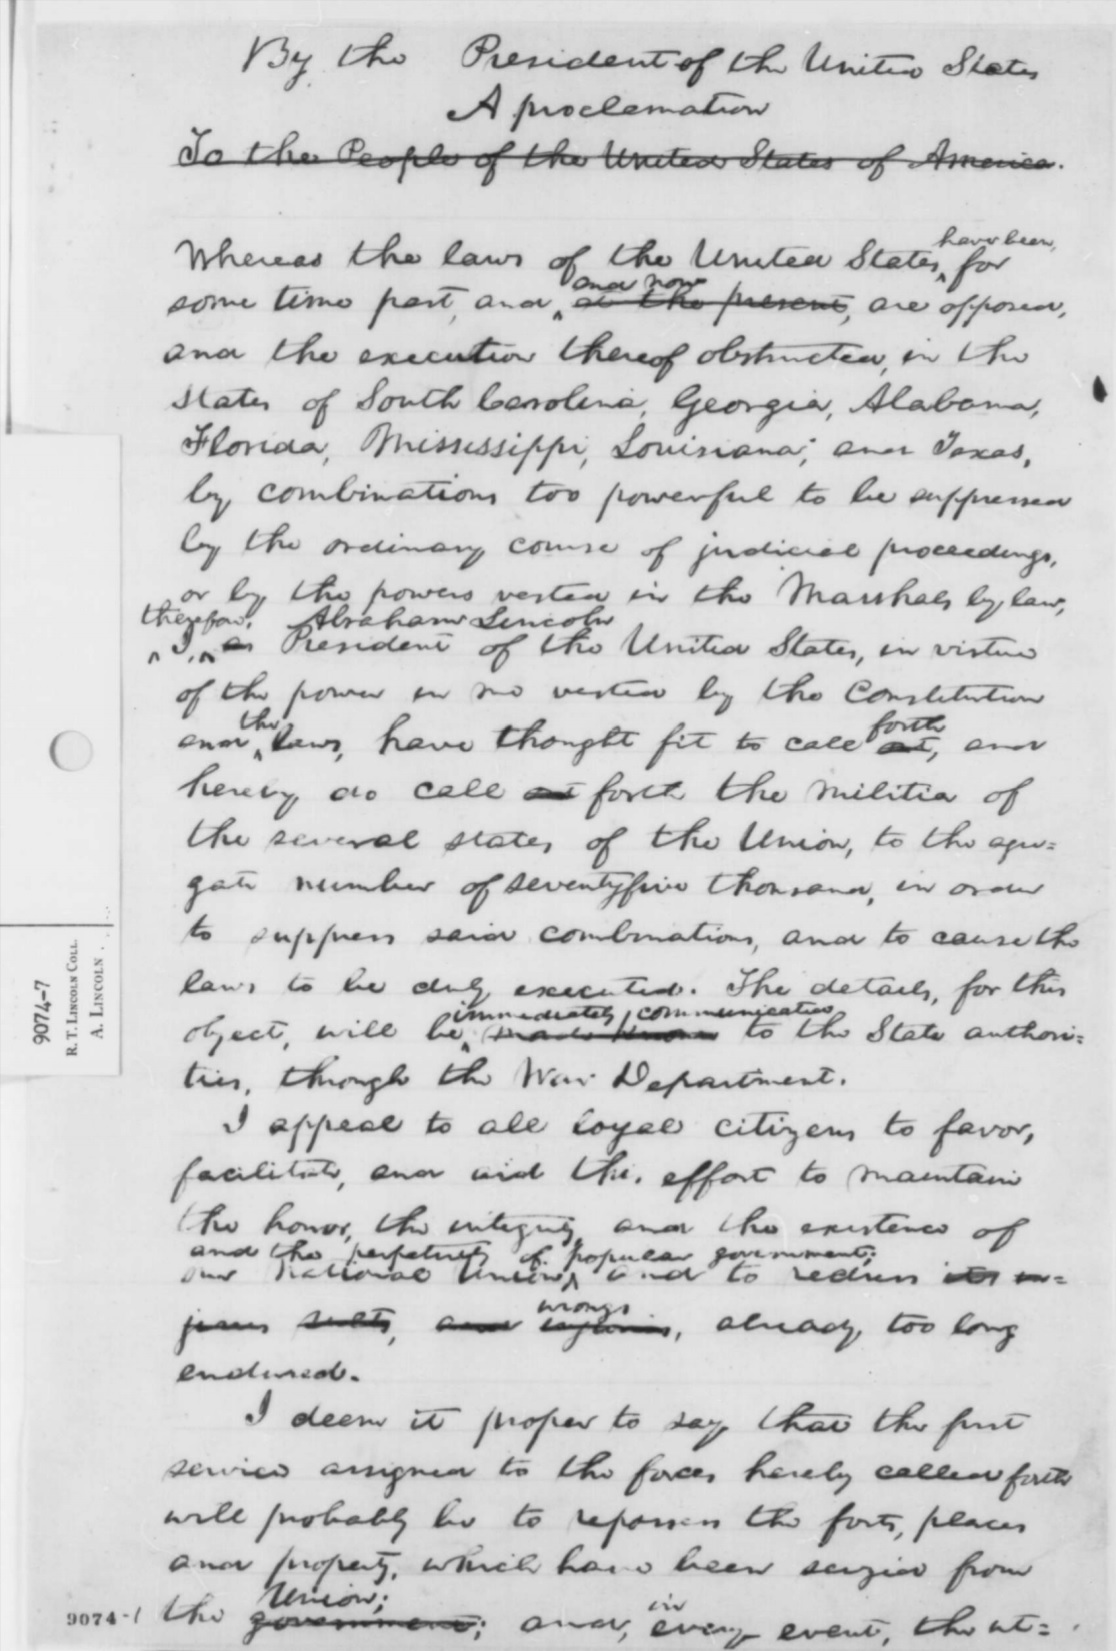 By the President of the United States
A proclamation
To the People of the United States of America.
have been,
Whereas the laws of the United States for
and now
some time past, and at the present, are opposed,
and the execution thereof obstructed, in the
states of South Carolina, Georgia, Alabama,
Florida, Mississippi, Louisiana, and Texas,
by combinations too powerful to be suppressed
by the ordinary course of judicial proceedings,
or by the powers vested in the Marshals by law,
therefore, Abraham Lincoln
I, as President of the United States, in virtue
of the power in me vested by the Constitution
the forth
and laws, have thought fit to call out, and
hereby do call out forth the militia of
the several states of the Union, to the agre=
gate number of seventyfive thousand, in order
to suppress said combinations, and to cause the
laws to be duly executed. The details, for this
immediately communicated
object, will be made known to the State authori=
ties, through the War Department.
I appeal to all loyal citizens to favor,
facilitate, and aid this effort to maintain
the honor, the integrity, and the existence of
and the perpetuity of popular government;
our national Union, and to redress its in=
wrongs
juries and, already too long
endured.
I deem it proper to say that the first
service assigned to the forces hereby called forth
will probably be to repossess the forts, places
and property, which have been seized from
Union; in
the government; and, every event, the ut=
9074-7
R. T. LINCOLN COLL.
A. LINCOLN
9074-1